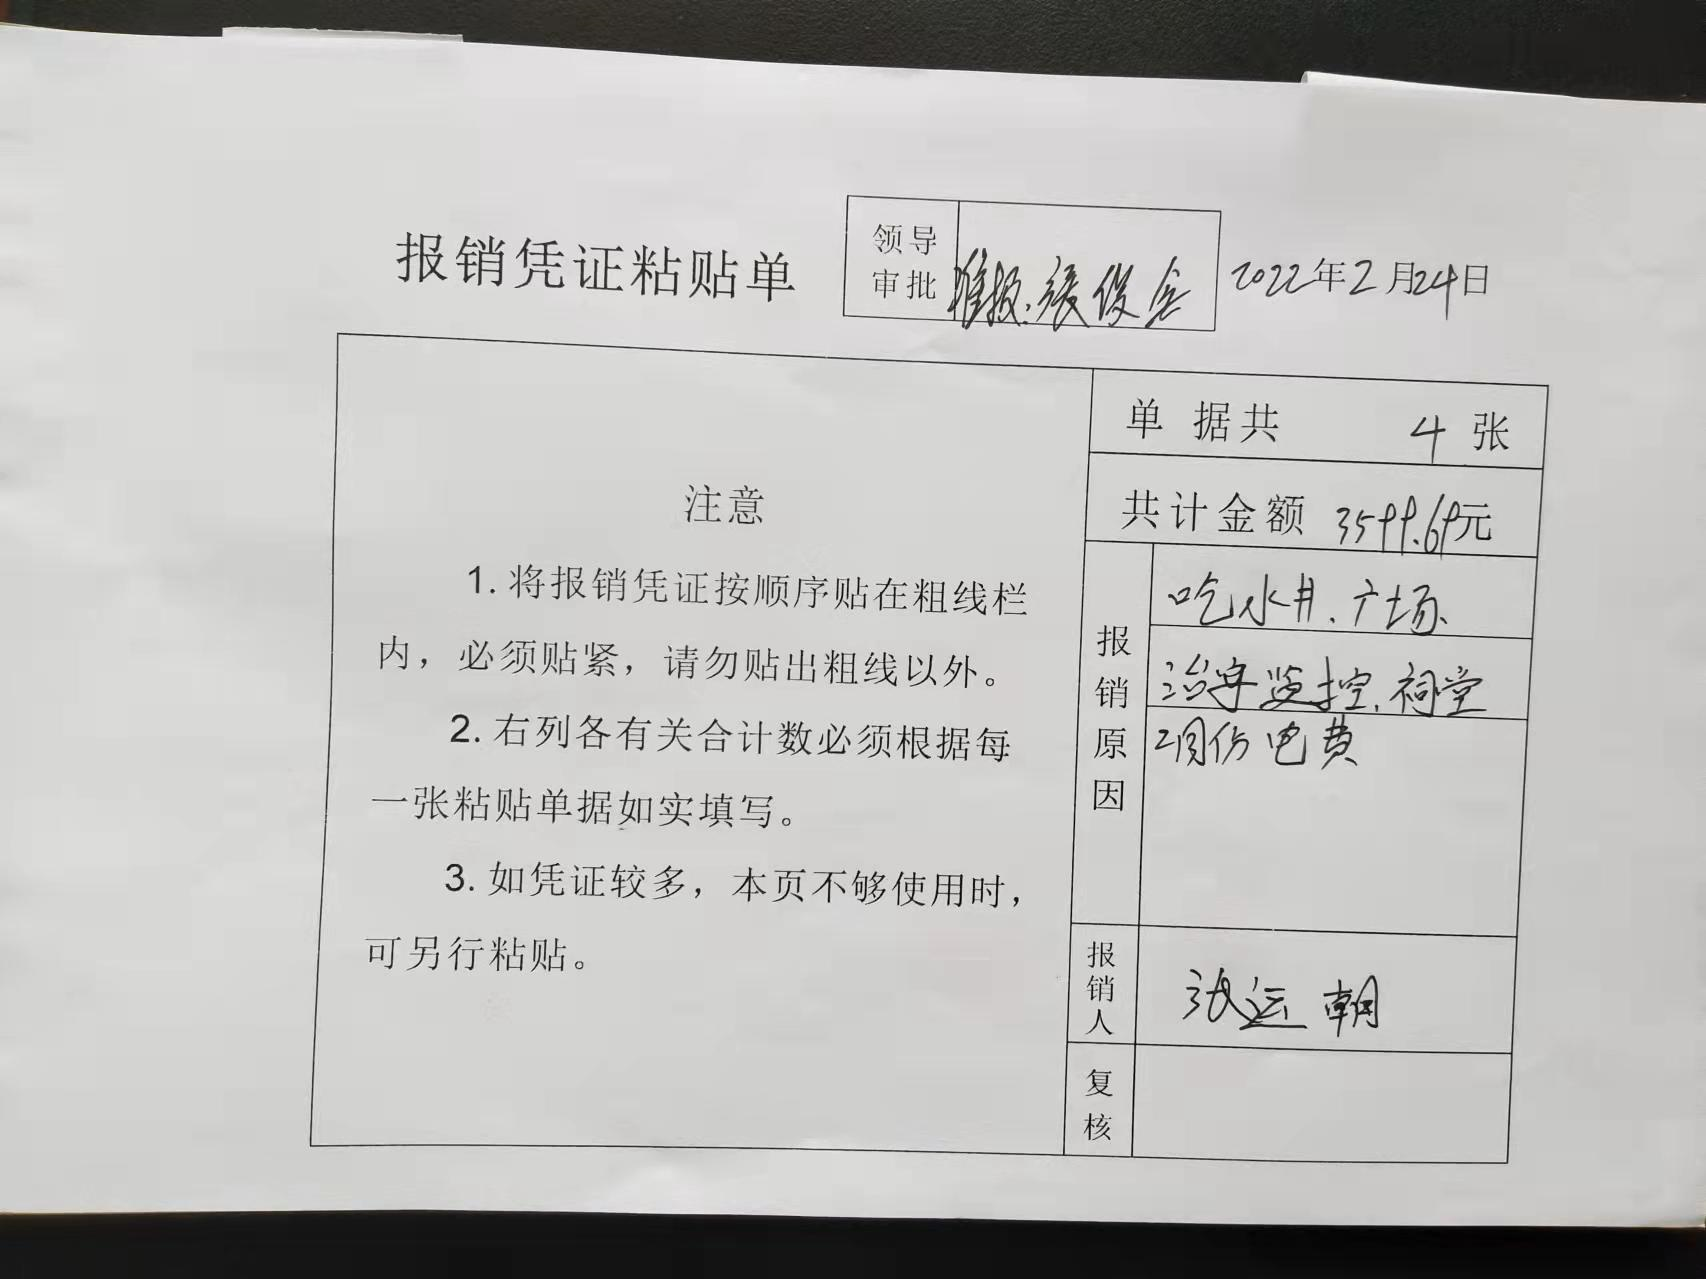 报销凭证粘贴单
领导审批 准报.张俊
2022年2月24日
注意
1. 将报销凭证按顺序贴在粗线栏
内，必须贴紧，请勿贴出粗线以外。
2. 右列各有关合计数必须根据每
一张粘贴单据如实填写。
3. 如凭证较多，本页不够使用时，
可另行粘贴。
单据共 4 张
共计金额 元
报销原因
吃水井、广场、
治安监控、祠堂
2月份电费
报销人 张运朝
复核